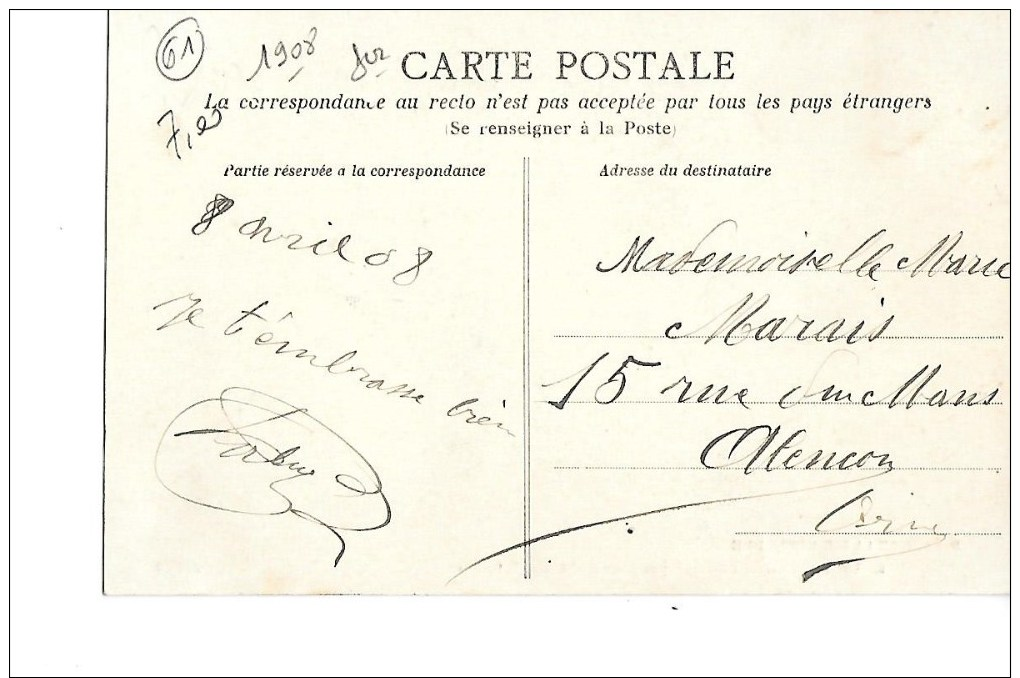 61
1908
CARTE POSTALE
7,00
La correspondance au recto n'est pas acceptée par tous les pays étrangers
(Se renseigner à la Poste)
Partie réservée a la correspondance
8 avril 08
Je t'émbrasse bien
Adresse du destinataire
Mademoiselle Marie
Marais
15 rue du Mans
Alencon
Orne